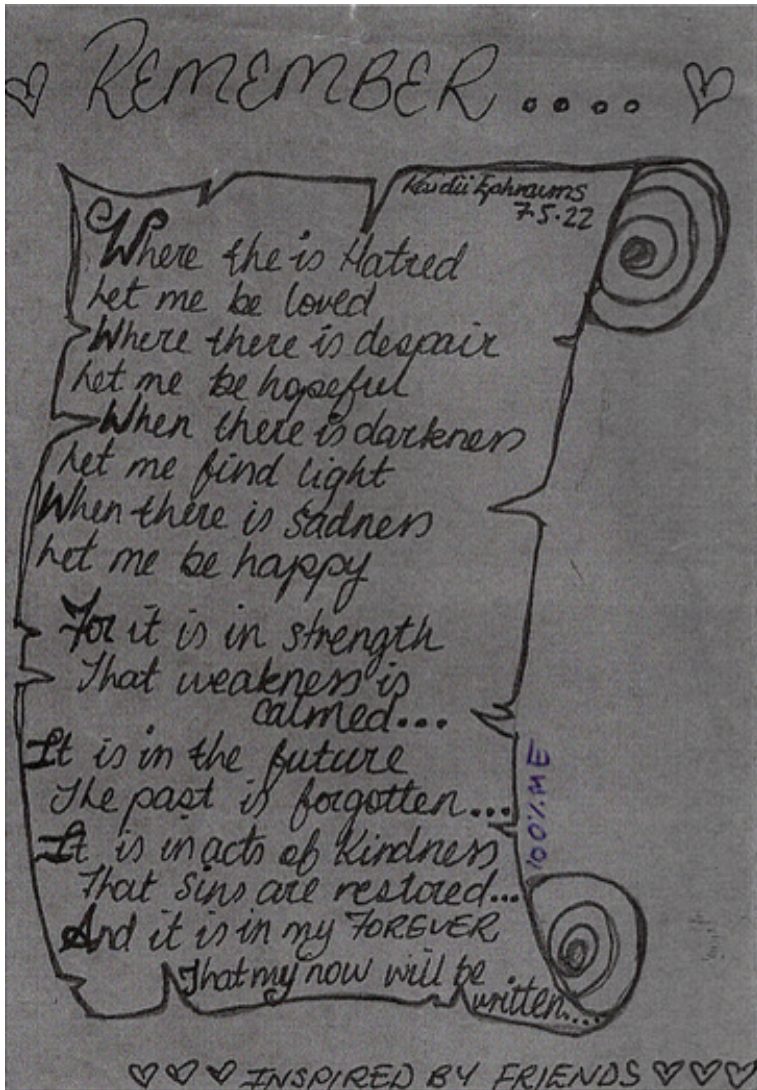 REMEMBER....
Kaidii Ephraums
7.5.22
Where the is Hatred
Let me be loved
Where there is despair
Let me be hopeful
When there is darkness
Let me find light
When there is sadness
Let me be happy
For it is in strength
That weakness is
calmed...
It is in the future
The past is forgotten...
It is in acts of Kindness
That Sins are restored...
And it is in my FOREVER
That my now will be
written....
100% ME
INSPIRED BY FRIENDS